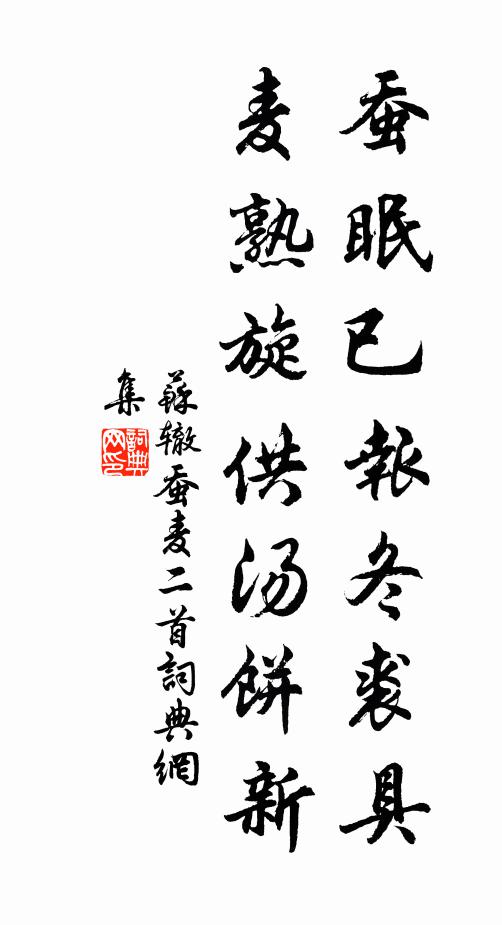 蚕眠已報冬裘具
麦熟旋供汤餅新
蘇辙蚕麦二首詞典網
集
詞典
网印